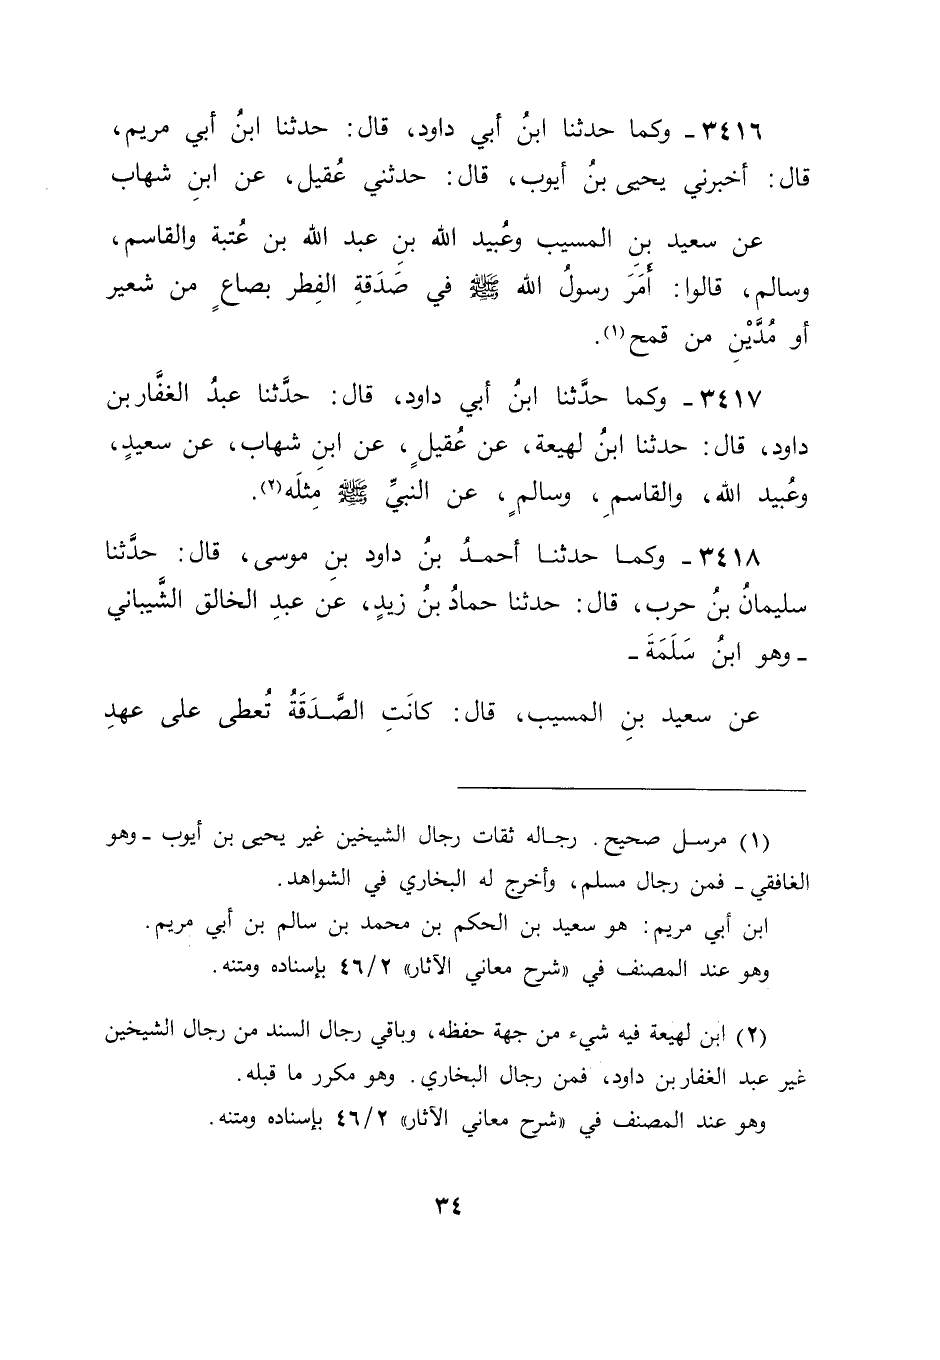 ٣٤١٦ ـ وكما حدثنا ابنُ أبي داود، قال: حدثنا ابنُ أبي مريم،
قال: أخبرني يحيى بنُ أيوب، قال: حدثني عُقيل، عن ابنِ شهاب
عن سعيد بنِ المسيب وعُبيد الله بنِ عبد الله بن عُتبة والقاسم،
وسالم، قالوا: أَمَرَ رسولُ الله ﷺ في صَدَقةِ الفِطر بصاعٍ من شعير
أو مُدَّيْنِ من قمح(١).
٣٤١٧ ـ وكما حدَّثنا ابنُ أبي داود، قال: حدَّثنا عبدُ الغفَّار بن
داود، قال: حدثنا ابنُ لهيعة، عن عُقيلٍ، عن ابنِ شهاب، عن سعيدٍ،
وعُبيد الله، والقاسمِ، وسالمٍ، عن النبيِّ ﷺ مِثلَه(٢).
٣٤١٨ ـ وكما حدثنا أحمدُ بنُ داود بنِ موسى، قال: حدَّثنا
سليمانُ بنُ حرب، قال: حدثنا حمادُ بنُ زيدٍ، عن عبدِ الخالق الشَّيباني
ـ وهو ابنُ سَلَمَةَ ـ
عن سعيد بنِ المسيب، قال: كانَتِ الصَّدَقَةُ تُعطى على عهدِ
(١) مرسل صحيح. رجاله ثقات رجال الشيخين غير يحيى بن أيوب ـ وهو
الغافقي ـ فمن رجال مسلم، وأخرج له البخاري في الشواهد.
ابن أبي مريم: هو سعيد بن الحكم بن محمد بن سالم بن أبي مريم.
وهو عند المصنف في «شرح معاني الآثار» ٤٦/٢ بإسناده ومتنه.
(٢) ابن لهيعة فيه شيء من جهة حفظه، وباقي رجال السند من رجال الشيخين
غير عبد الغفار بن داود، فمن رجال البخاري. وهو مكرر ما قبله.
وهو عند المصنف في «شرح معاني الآثار» ٤٦/٢ بإسناده ومتنه.
٣٤